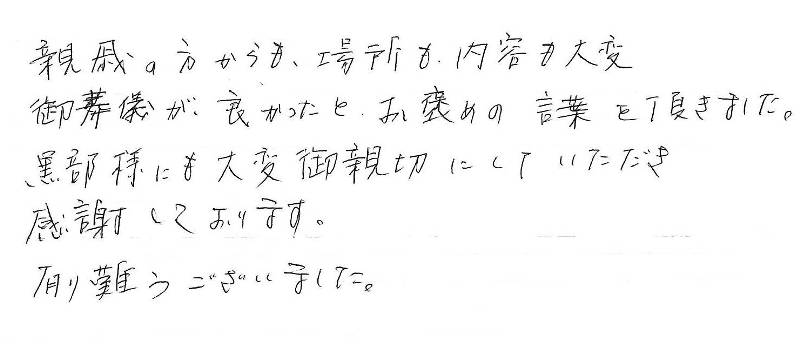 親戚の方からも、場所も、内容も大変
御葬儀が、良かったと、お褒めの言葉を頂きました。
黒部様にも大変御親切にしていただき
感謝しております。
有り難うございました。